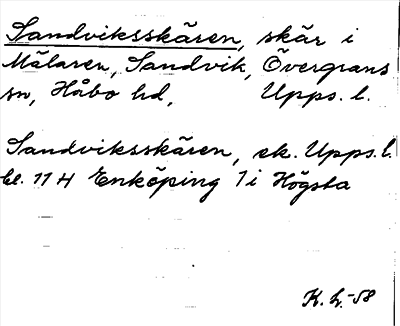 Sandviksskären, skär i
Mälaren, Sandvik, Övergrans
sn, Håbo hd, Upps. l.
Sandviksskären, ek. Upps. l.
bl. 11 H Enköping 7 i Högsta
K. L. -58